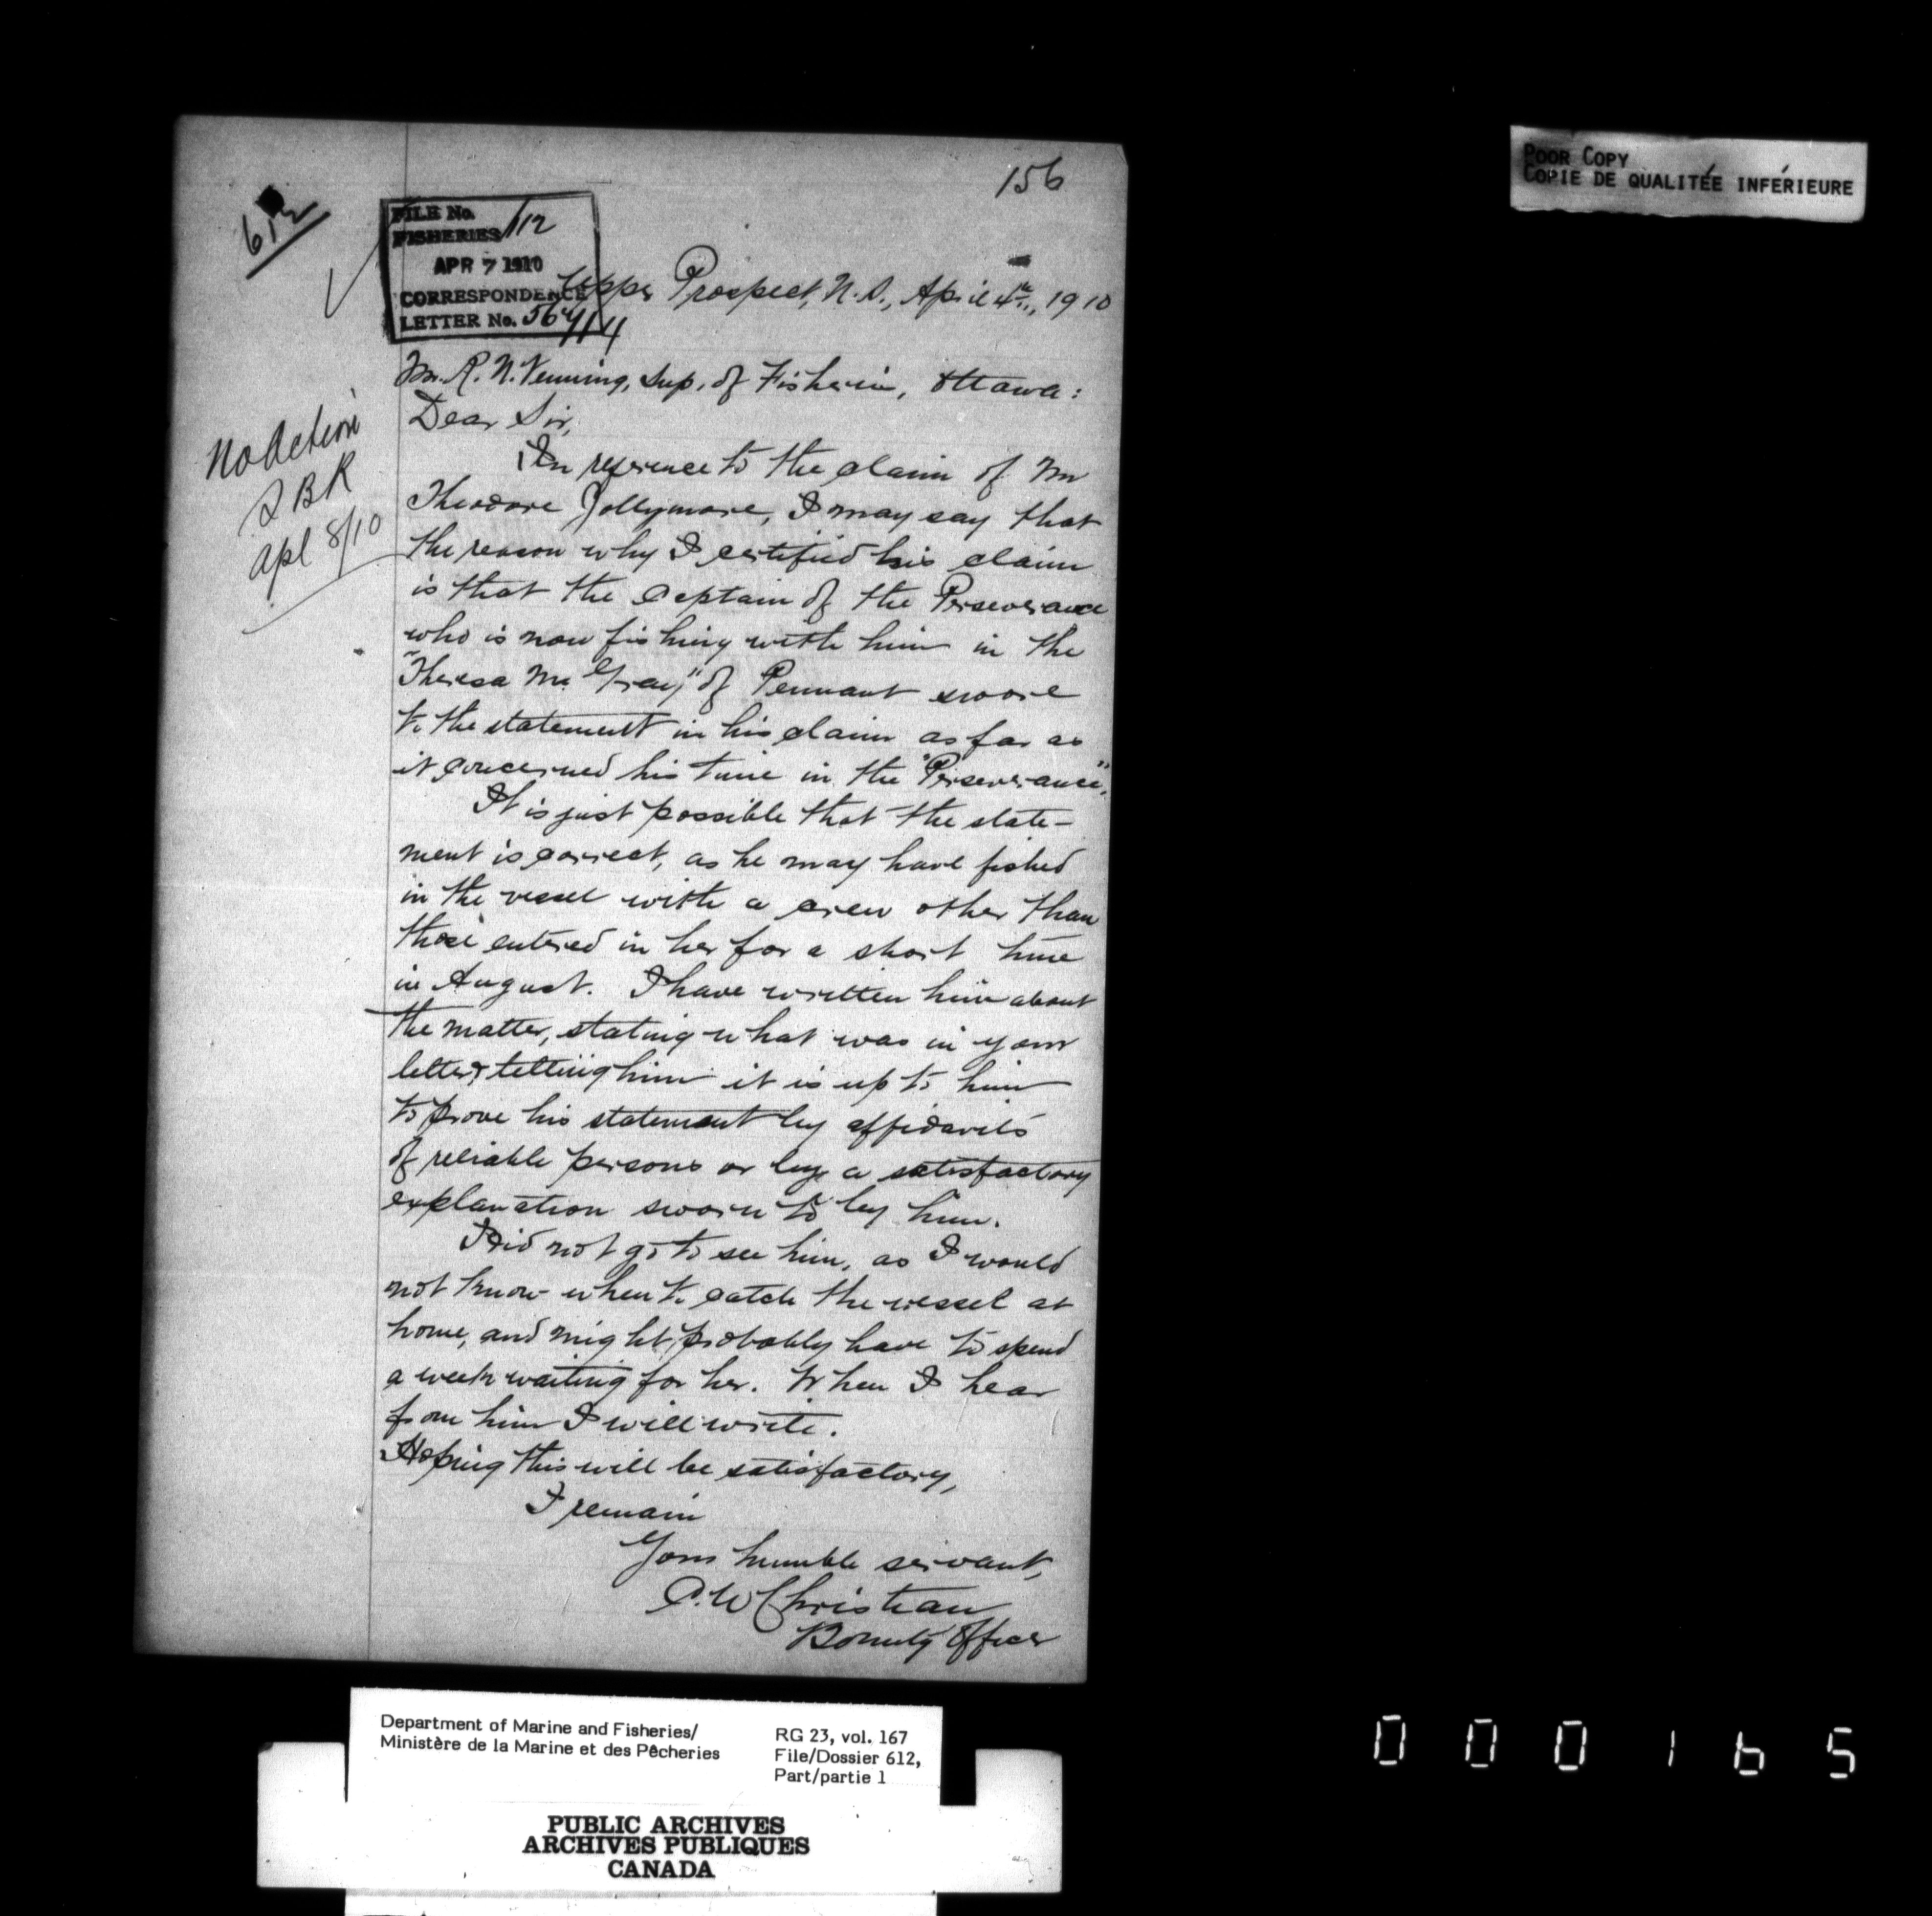 156
612
FILE No.
FISHERIES 612
APR 7 1910
CORRESPONDENCE
LETTER No.
Upper Prospect, N.S., April 4th, 1910
Mr. R. N. Venning, Sup. of Fisheries, Ottawa:
Dear Sir,
No Action
apl 8/10
In reference to the claim of Mr
Theodore Jollymore, I may say that
the reason why I certified his claim
is that the captain of the Perseverance
who is now fishing with him in the
"Theresa M. Gray" of Pennant swore
to the statement in his claim as far as
it concerned his time in the "Perseverance".
It is just possible that the state-
ment is correct, as he may have fished
in the vessel with a crew other than
those entered in her for a short time
in August. I have written him about
the matter, stating what was in your
letter & telling him it is up to him
to prove his statement by affidavits
of reliable persons or by a satisfactory
explanation sworn to by him.
I did not go to see him, as I would
not know when to catch the vessel at
home, and might probably have to spend
a week waiting for her. When I hear
from him I will write.
Hoping this will be satisfactory,
I remain
Your humble servant,
C. W. Christian
Bounty Officer
POOR COPY
COPIE DE QUALITÉE INFÉRIEURE
Department of Marine and Fisheries/
Ministère de la Marine et des Pêcheries
RG 23, vol. 167
File/Dossier 612,
Part/partie 1
PUBLIC ARCHIVES
ARCHIVES PUBLIQUES
CANADA
000165